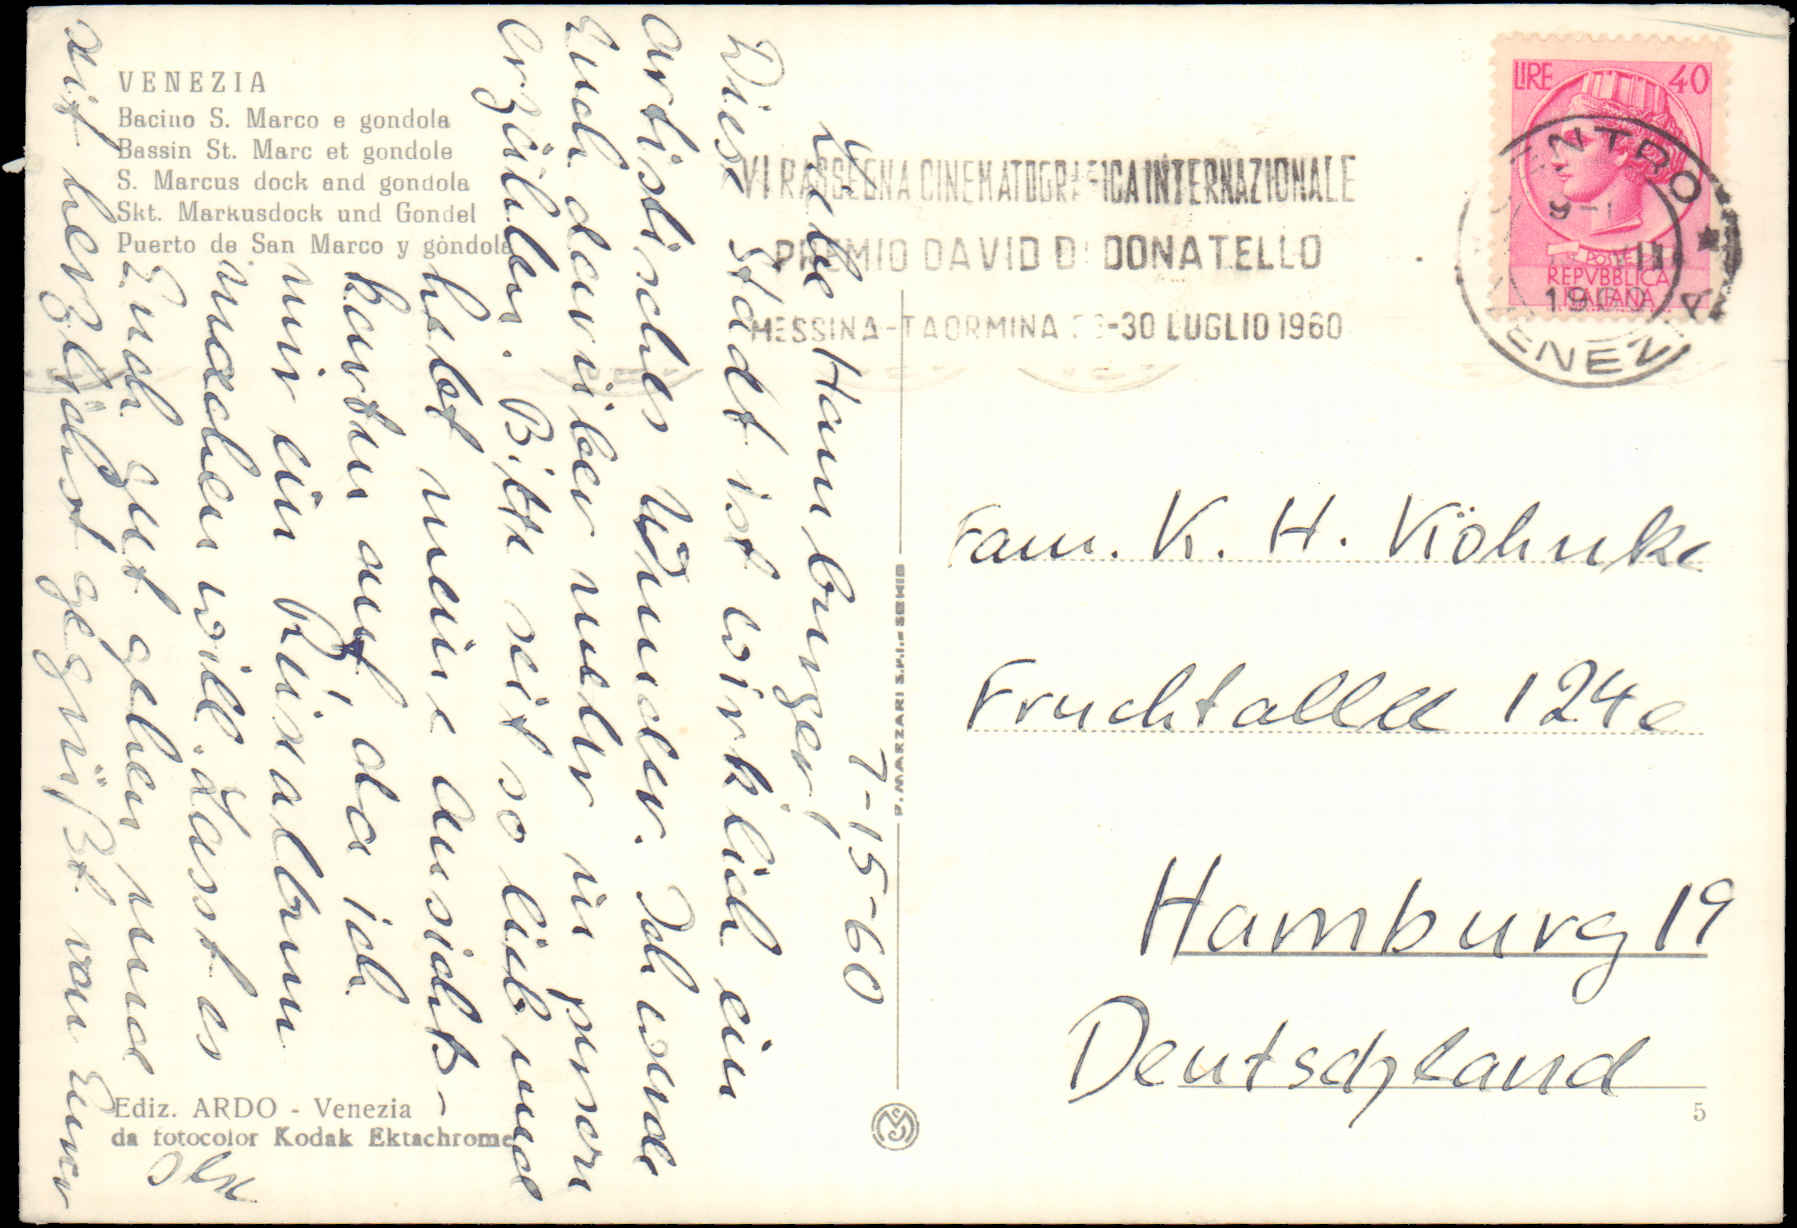 VENEZIA
Bacino S. Marco e gondola
Bassin St. Marc et gondole
S. Marcus dock and gondola
Skt. Markusdock und Gondel
Puerto de San Marco y gòndola
7-15-60
Liebe Hamburger,
Diese Stadt ist wirklich ein
artistisches Wunder. Ich werde
Euch darüber mehr in
erzählen. Bitte seit so lieb und
habet meine Aussichts-
karten auf, da ich
mir ein Reisealbum
machen will. Lasst es
Euch gut gehen und
seit herzlichst gegrüßt von Eurer
Ediz. ARDO - Venezia
da fotocolor Kodak Ektachrome
P. MARZARI S.R.L. - SCHIO
VI RASSEGNA CINEMATOGRAFICA INTERNAZIONALE
PREMIO DAVID DI DONATELLO
MESSINA-TAORMINA -30 LUGLIO 1960
LIRE 40
POSTE
REPVBBLICA
ITALIANA
CENTRO
VENEZIA
Fam. K. H. Köhnke
Fruchtallee 124a
Hamburg 19
Deutschland
5